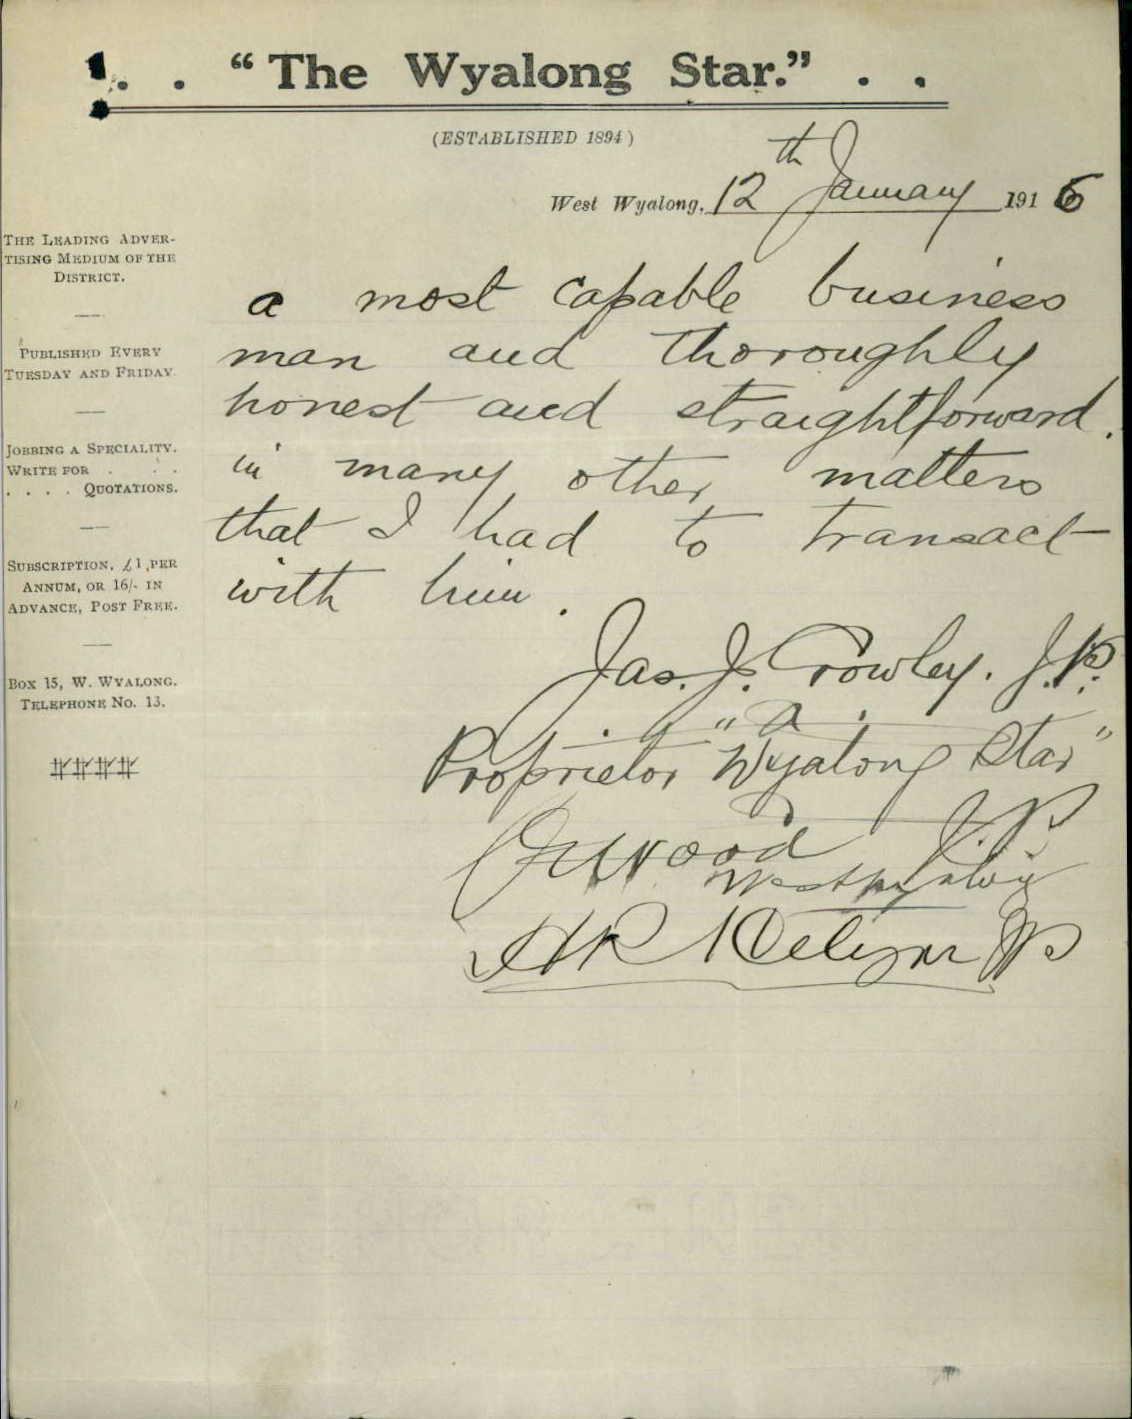 . . “The Wyalong Star.” . .
(ESTABLISHED 1894)
West Wyalong, 12th January 1916
THE LEADING ADVER-
TISING MEDIUM OF THE
DISTRICT.
PUBLISHED EVERY
TUESDAY AND FRIDAY
JOBBING A SPECIALITY.
WRITE FOR . . .
. . . . QUOTATIONS.
SUBSCRIPTION, £1 PER
ANNUM, OR 16/- IN
ADVANCE, POST FREE.
BOX 15, W. WYALONG.
TELEPHONE NO. 13.
a most capable business
man and thoroughly
honest and straightforward.
in many other matters
that I had to transact
with him.
Jas. J. Crowley. J.P.
Proprietor "Wyalong Star"
Wood J.P.
West Wyalong
JP